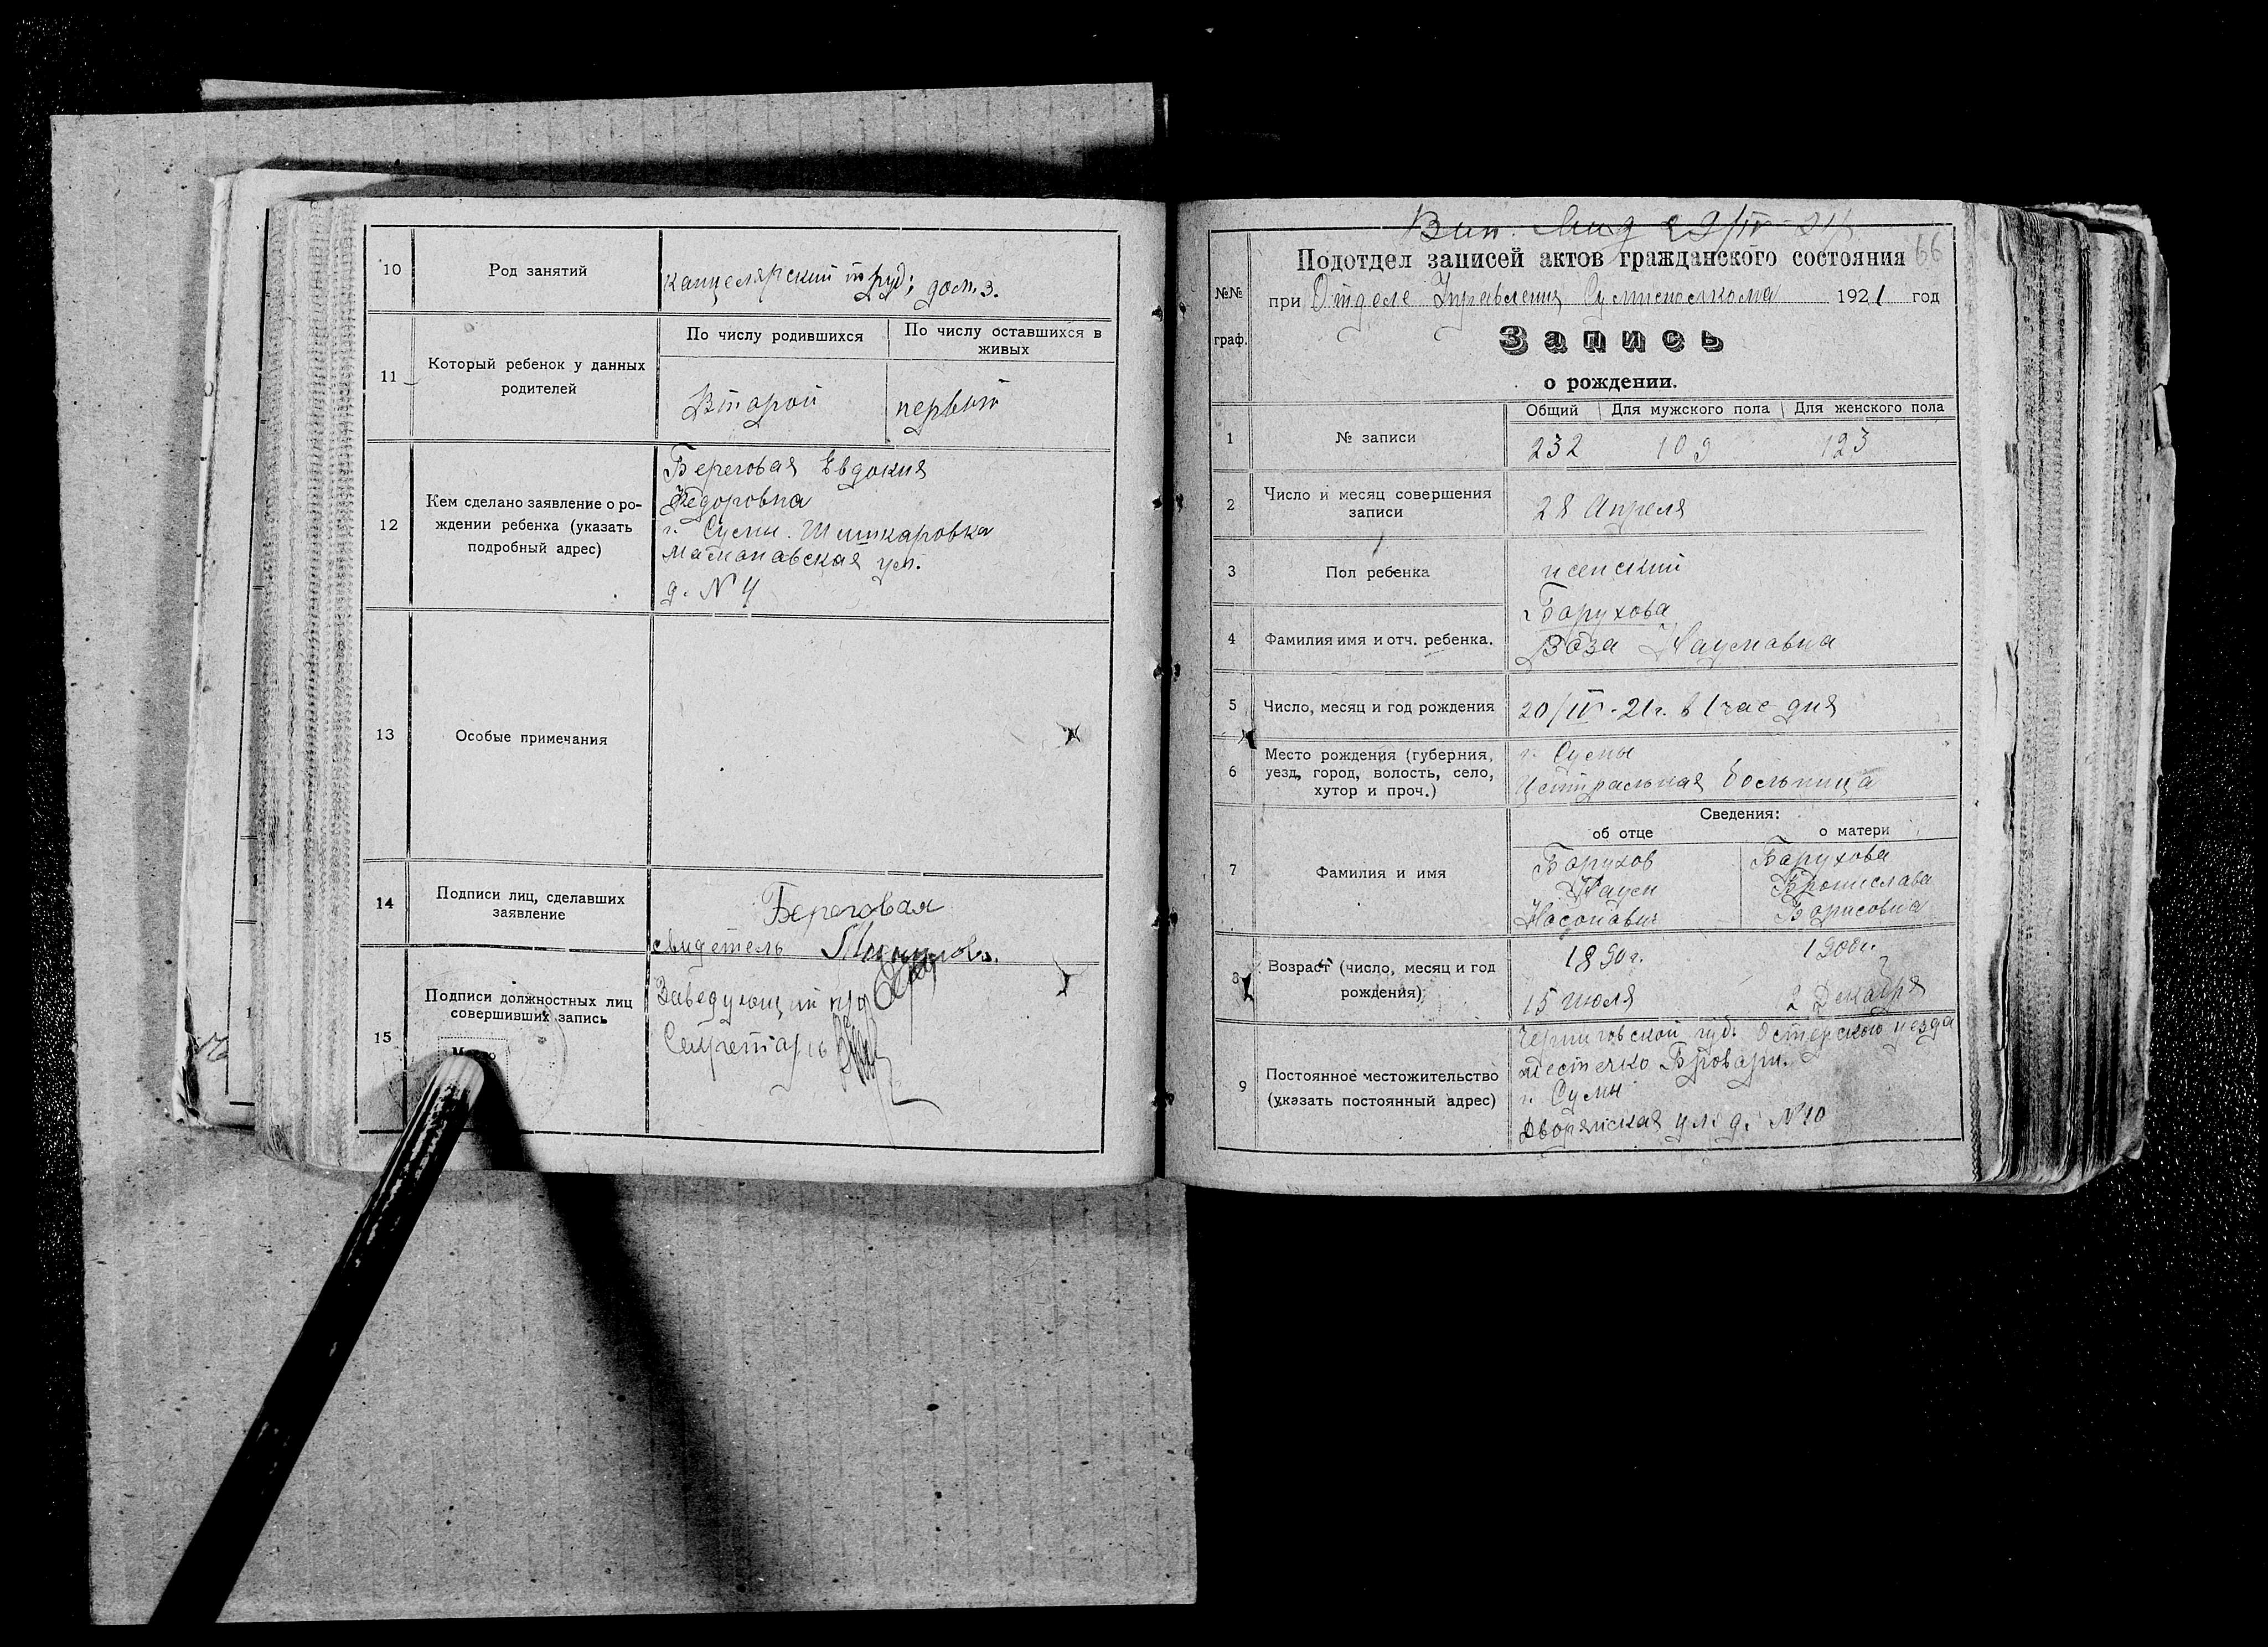 10
Род занятий
канцелярский труд; дом. з.
11
Который ребенок у данных
родителей
По числу родившихся
По числу оставшихся в
живых
Второй
первый
12
Кем сделано заявление о ро-
ждении ребенка (указать
подробный адрес)
Береговая Евдокия
Федоровна
г. Сумы.
ул.
д. № 4
13
Особые примечания
14
Подписи лиц, сделавших
заявление
Береговая
свидетель
15
Подписи должностных лиц
совершивших запись
Заведующий п/о
Секретарь
66
Подотдел записей актов гражданского состояния
при Отделе Управления 1921 год
№№
граф.
Запись
о рождении.
1
№ записи
Общий
Для мужского пола
Для женского пола
232
109
123
2
Число и месяц совершения
записи
28 Апреля
3
Пол ребенка
женский
4
Фамилия имя и отч. ребенка.
Барухова
Роза Наумовна
5
Число, месяц и год рождения
20/IV-21г. в 1 час дня
6
Место рождения (губерния,
уезд, город, волость, село,
хутор и проч.)
г. Сумы
Центральная больница
Сведения:
об отце
о матери
7
Фамилия и имя
Барухов
Наум
Насонович
Барухова
Бронислава
Борисовна
8
Возраст (число, месяц и год
рождения)
1890г.
15 июля
1900г.
2 Декабря
9
Постоянное местожительство
(указать постоянный адрес)
Черниговской губ. Остерского уезда
местечко Бровары.
г. Сумы
Дворянская ул. д. № 10